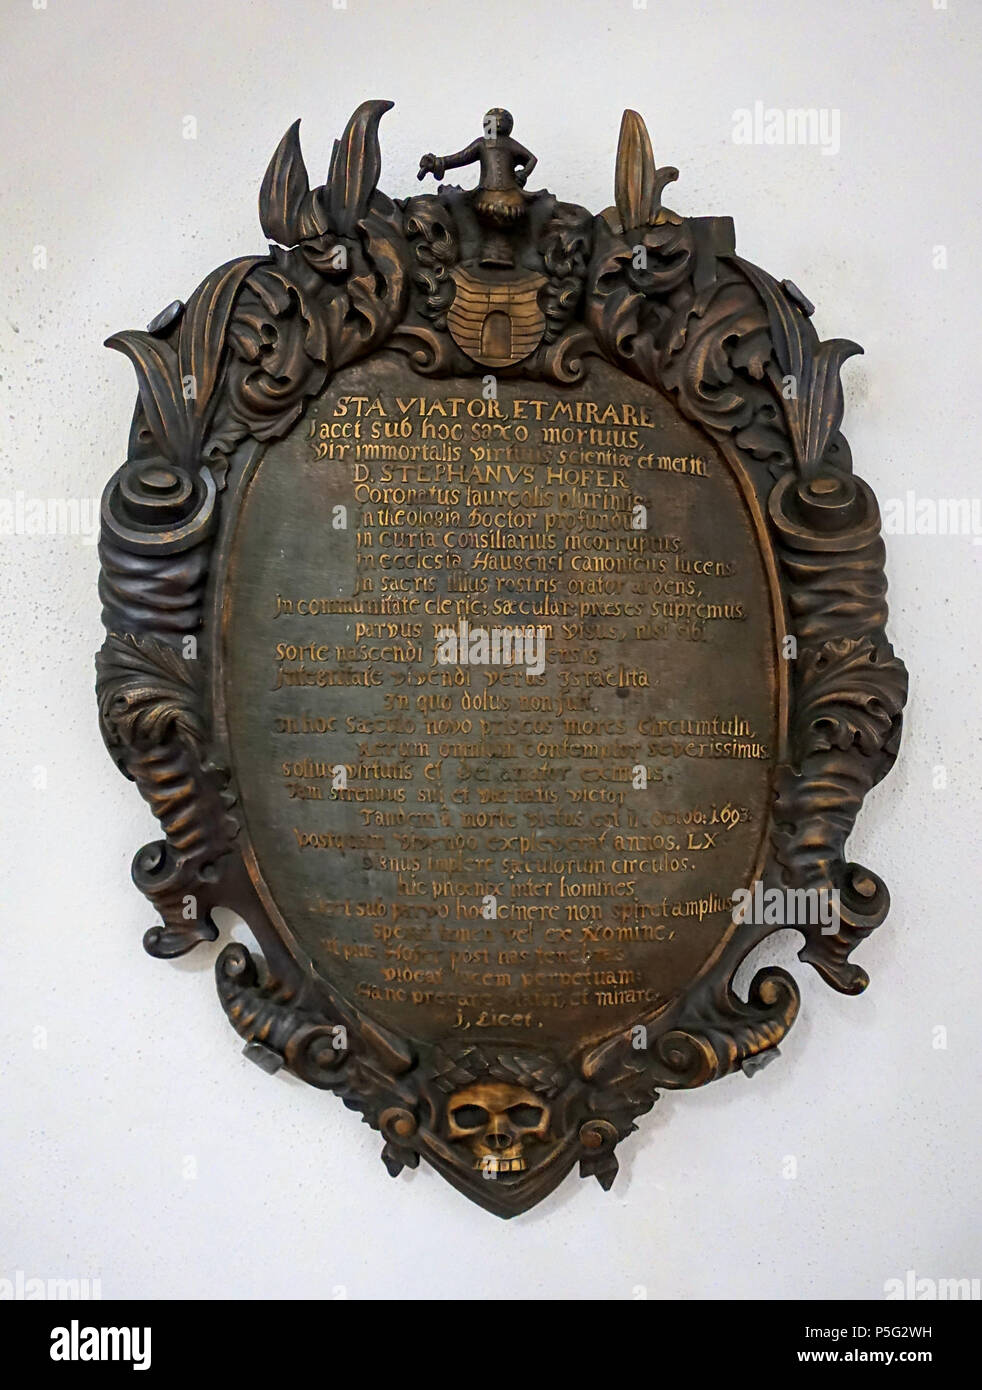 STA VIATOR, ET MIRARE
Jacet sub hoc saxo mortuus,
vir immortalis virtutis scientiæ et meriti
D. STEPHANVS HOFER
Coronatus laureolis plurimis
in theologia Doctor profundus
in curia Consiliarius incorruptus
in ecclesia Haugensi canonicus lucens
in sacris illius rostris orator ardens,
in communitate cleric: sæcular: præses supremus,
parvus nulli unquam visus, nisi sibi
Sorte nascendi
Integritate vivendi verus Israëlita.
in quo dolus non fuit.
in hoc Sæculo novo priscos mores circumtulit,
Rerum omnium contemptor severissimus
solius virtutis et Dei amator eximius.
Tam strenuus sui et victor
Tandem à morte victus est octob: 1693.
Postquam vivendo expleverat annos. LX
dignus implere sæculorum circulos.
hic phœnix inter homines
sub parvo hoc cinere non spiret amplius
vel ex Nomine,
ut pius Hofer post has tenebras
videat lucem perpetuam:
Hanc precare viator, et mirare.
j, Licet.
alamy
alamy
Image ID: P5G2WH
www.alamy.com